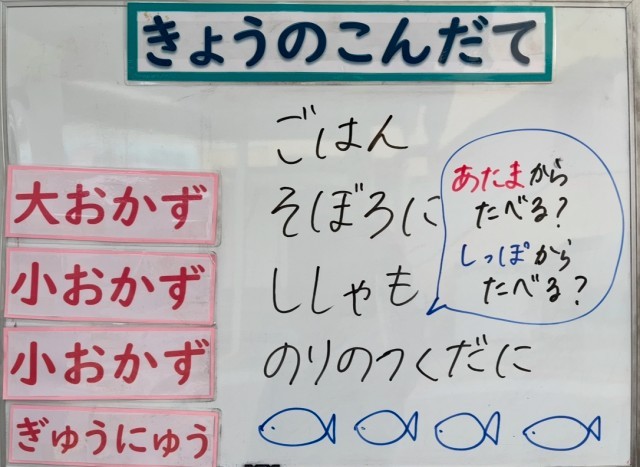 きょうのこんだて
ごはん
大おかず そぼろに
小おかず ししゃも
小おかず のりのつくだに
ぎゅうにゅう
あたまから
たべる?
しっぽから
たべる?